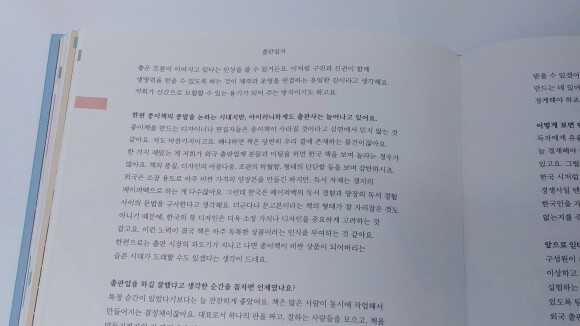 출판업자
좋은 흐름이 이어지고 있다는 인상을 줄 수 있거든요. 이처럼 구권과 신권이 함께
생명력을 얻을 수 있도록 하는 것이 제작과 운영을 연결하는 유일한 길이라고 생각해요.
저희가 신간으로 모험할 수 있는 용기가 되어 주는 방식이기도 하고요.
한편 종이책의 종말을 논하는 시대지만, 아이러니하게도 출판사는 늘어나고 있어요.
종이책을 만드는 디자이너나 편집자들은 종이책이 사라질 것이라고 심연에서 믿지 않는 것
같아요. 저도 마찬가지이고요. 왜냐하면 책은 당연히 우리 곁에 존재하는 물건이잖아요.
한 가지 재밌는 게 저희가 외국 출판업계 분들과 미팅을 하면 한국 책을 보며 놀라는 경우가
많아요. 책의 품질, 디자인의 아름다움, 조판의 탁월함, 형태의 단단함 등을 보며 감탄하시죠.
외국은 소장 용도로 아주 비싼 가격의 양장본을 만들긴 하지만, 독서 자체는 갱지의
페이퍼백으로 하는 게 다수잖아요. 그런데 한국은 페이퍼백의 독서 경험과 양장의 독서 경험
사이의 문법을 구사한다고 생각해요. 더군다나 문고본이라는 책의 형태가 잘 자리잡은 것도
아니기 때문에, 한국의 북 디자인은 더욱 소장 가치나 디자인을 중요하게 고려하는 것
같고요. 이런 노력이 결국 책은 아주 독특한 상품이라는 인식을 부여하는 것 같아요.
한편으로는 출판 시장의 과도기가 지나고 나면 종이책이 비싼 상품이 되어버리는
슬픈 시대가 도래할 수도 있겠다는 생각이 드네요.
출판업을 하길 잘했다고 생각한 순간을 꼽자면 언제였나요?
특정 순간이 있었다기보다는 늘 잔잔하게 좋았어요. 책은 많은 사람이 동시에 작업해서
만들어지는 결정체이잖아요. 대표로서 하나의 판을 짜고, 잘하는 사람들을 모으고, 책을
받을 수 있겠
만드는 데 있어
경계해야 하
어떻게 보면
독자에게 유용
늘 경계해야
있고요. 그
한국 시처럼
경쟁사일
한국인을 자
없는지를
앞으로 인다
구성원이
이상하고
실험할
있도록